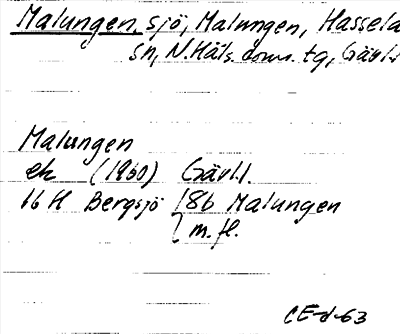 Malungen, sjö, Malungen, Hassela
sn, N.Häls. doms. tg, Gävl.
Malungen
ek (1960) Gävl.
16 H Bergsjö 8b Malungen
m. fl.
CE-d-63